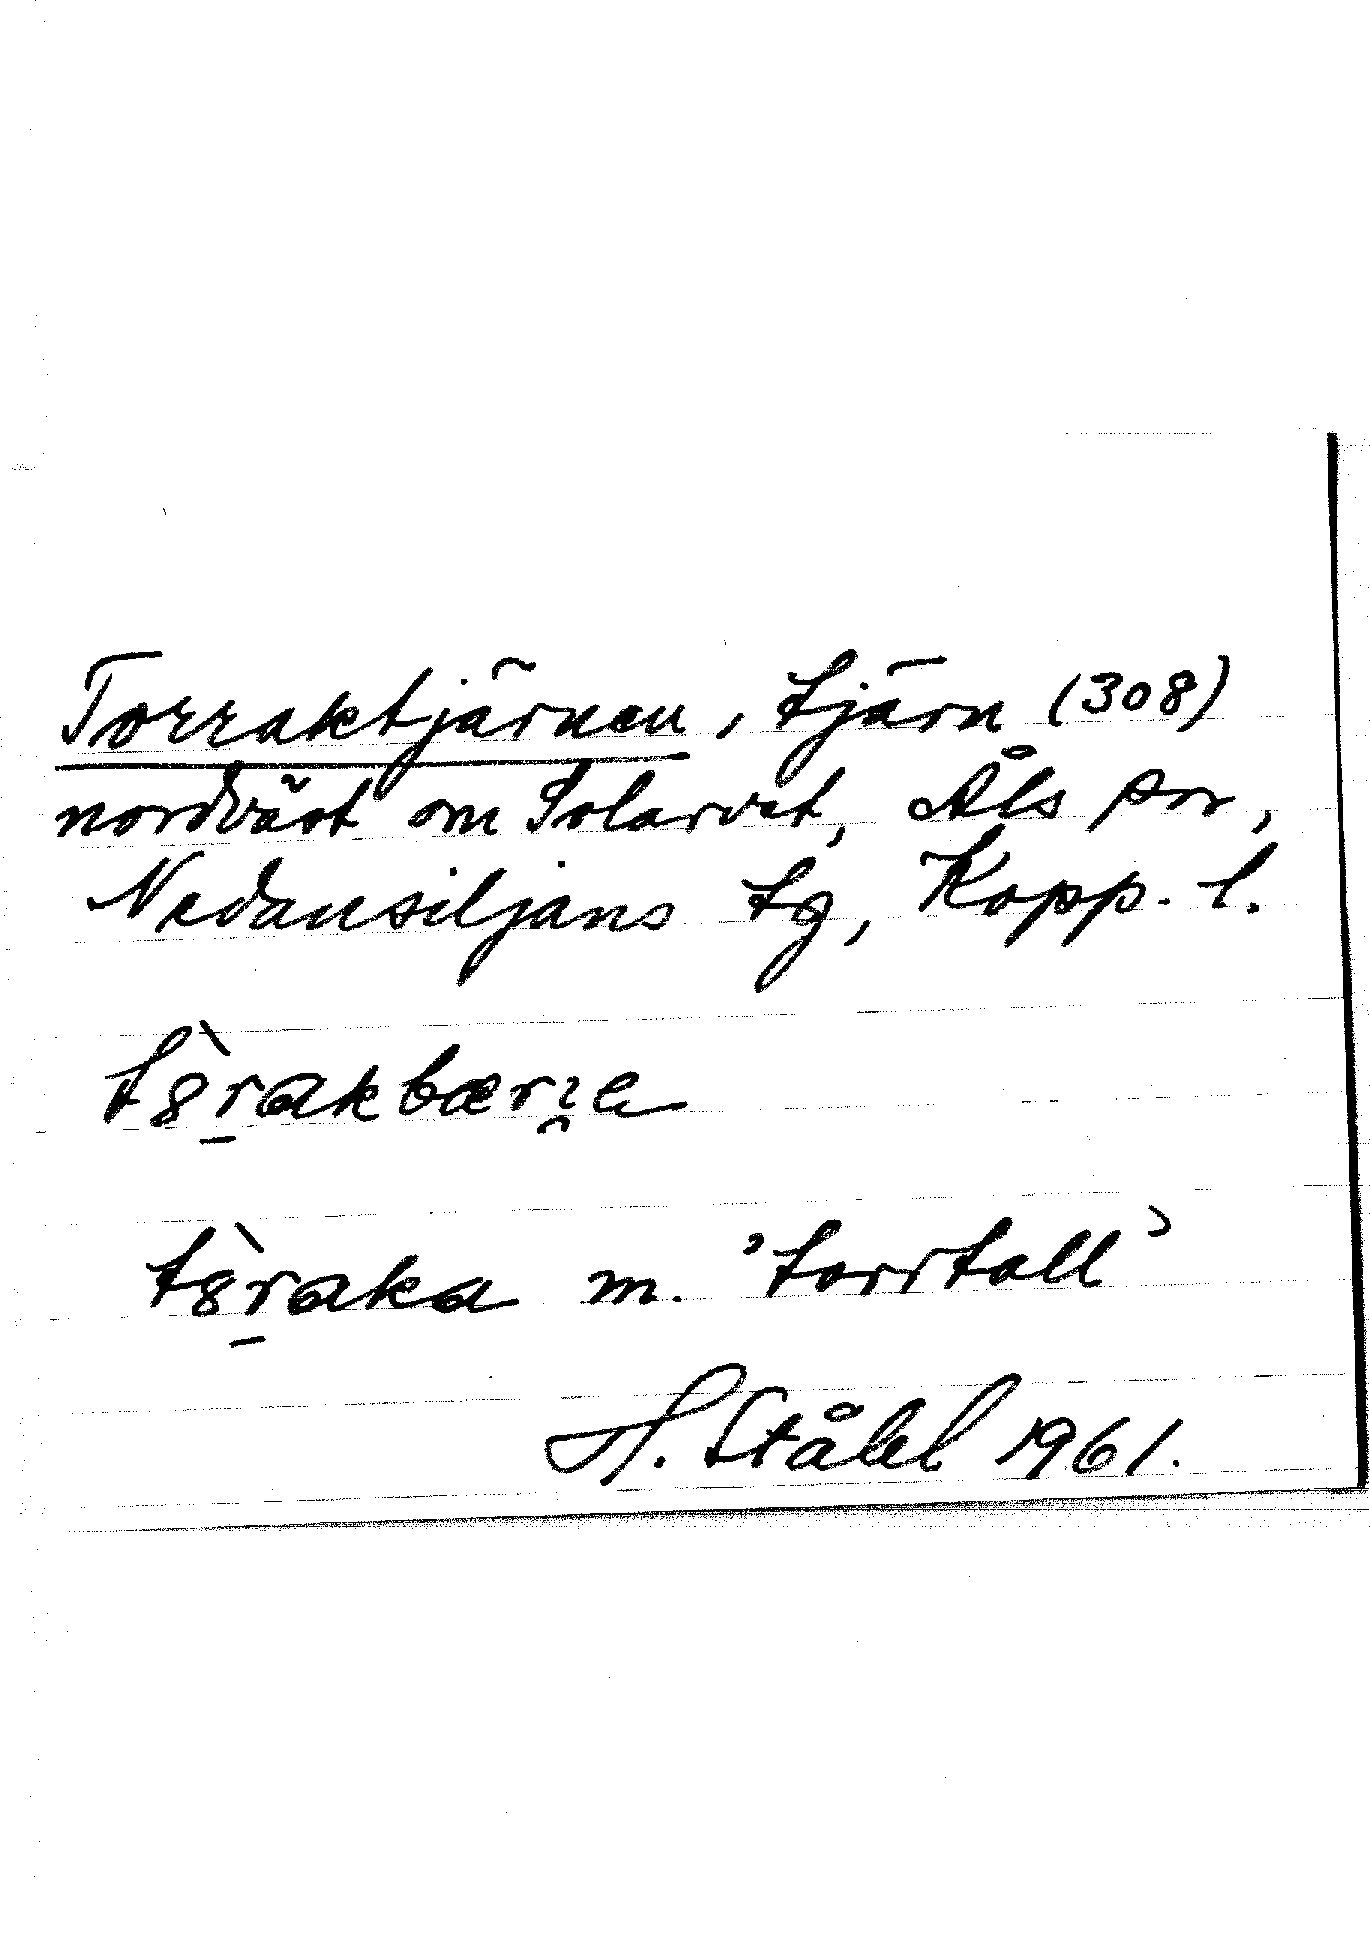 Torraktjärnen, tjärn (308)
nordväst om Solarvet, Åls sn,
Nedansiljans tg, Kopp. l.
tò̱rakbærn̥e
tò̱raka m. 'torrtall'
H. Ståhl 1961.